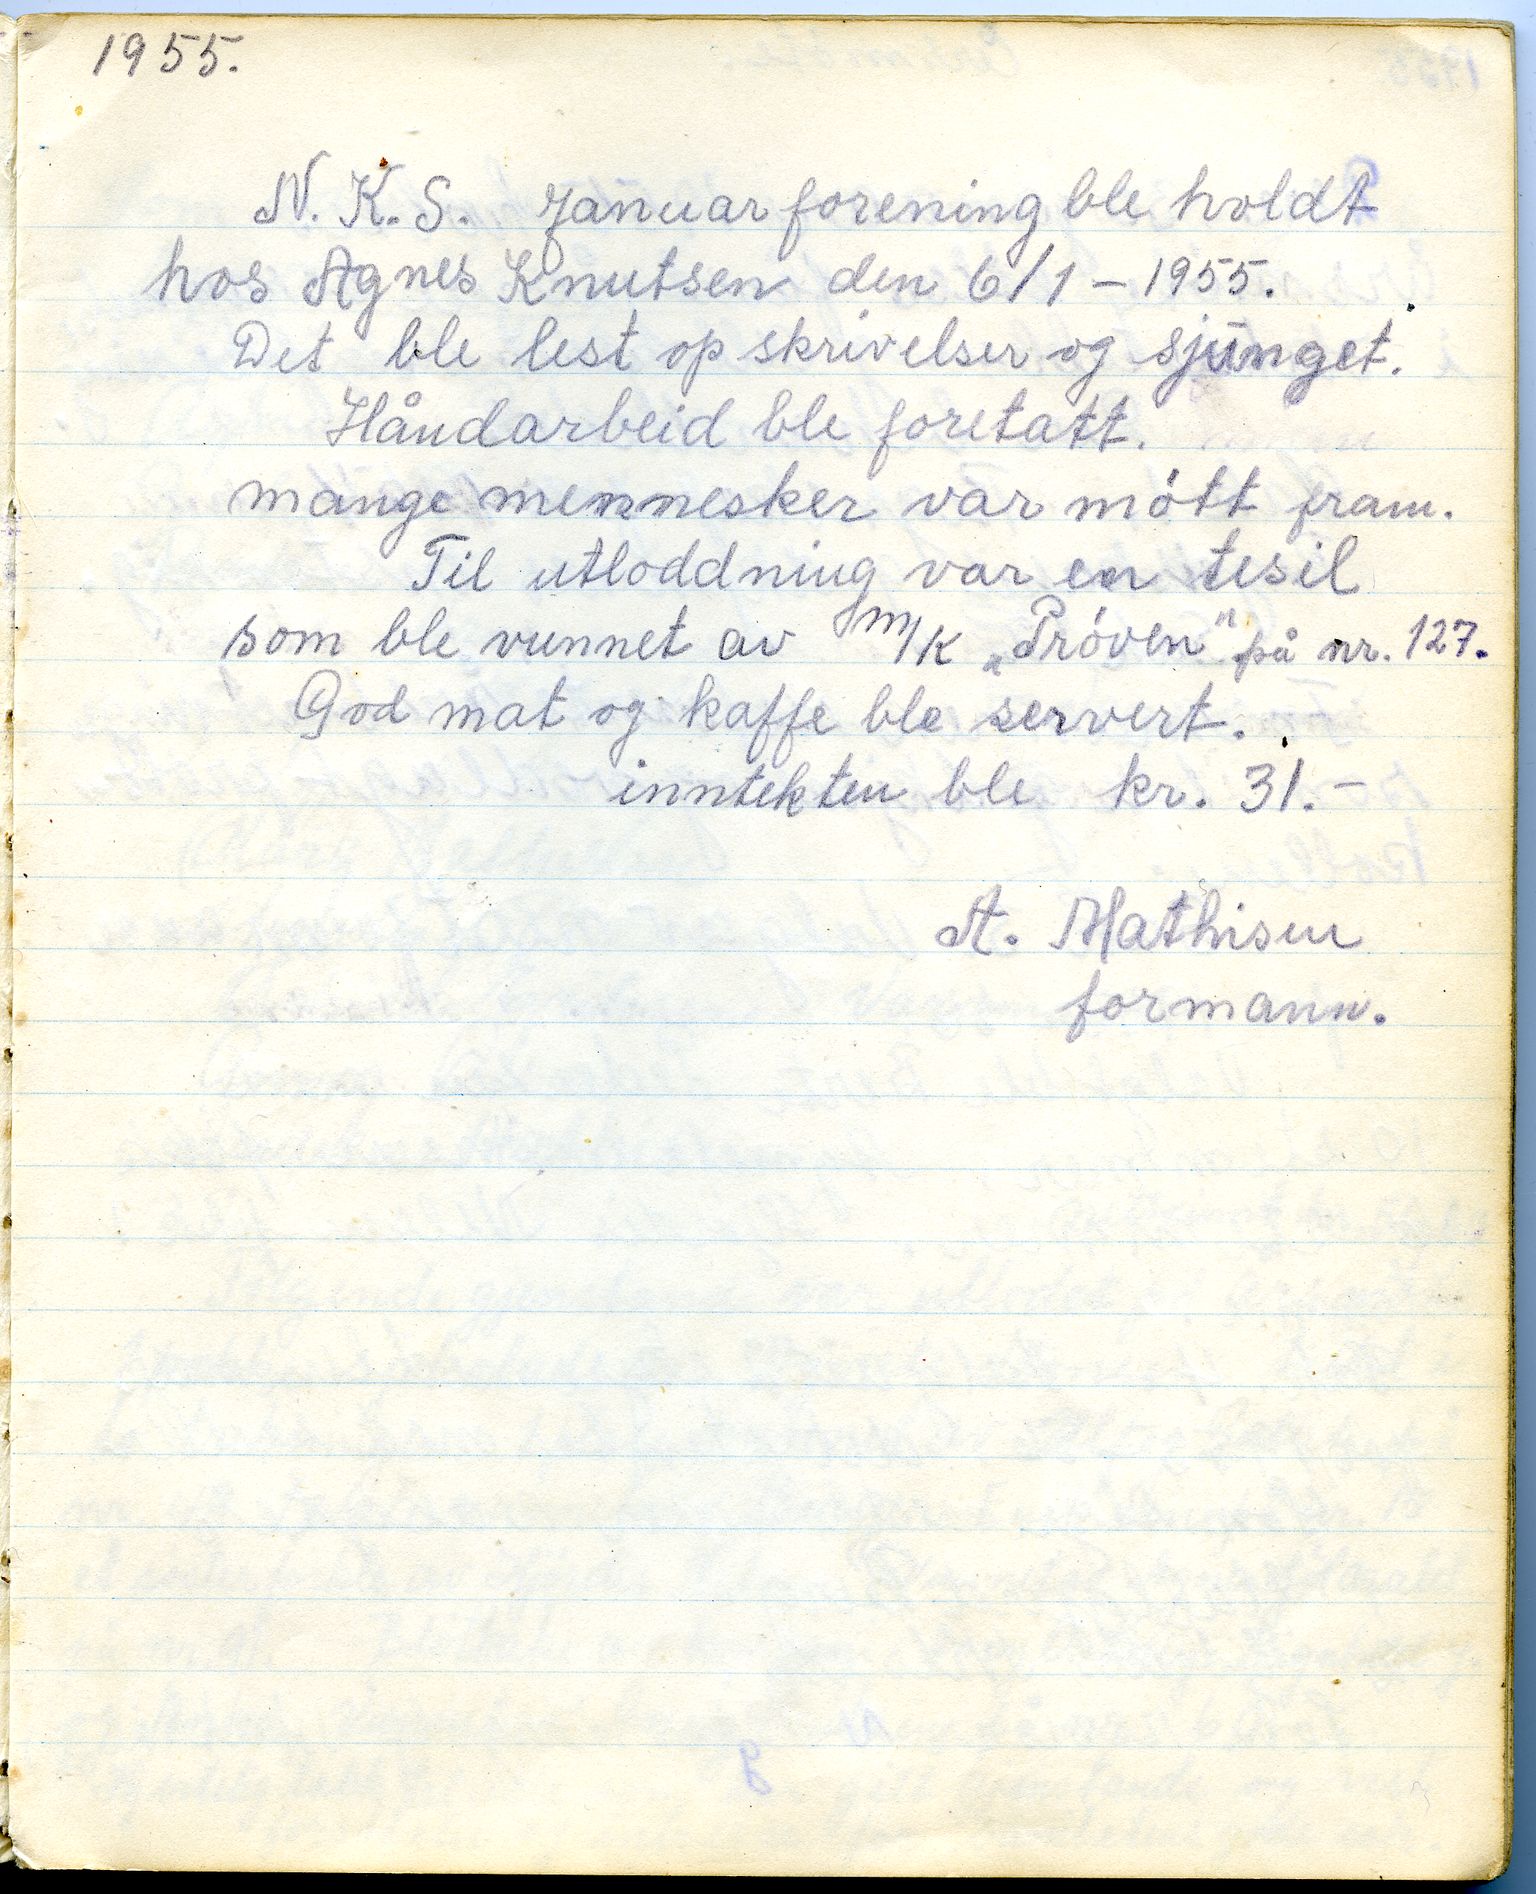 1955.
N. K. S. Januar forening ble holdt
hos Agnes Knutsen den 6/1 – 1955.
Det ble lest op skrivelser og sjunget.
Håndarbeid ble foretatt.
mange mennesker var mótt fram.
Til utloddning var en tesil
som ble vunnet av m/k „Próven" på nr. 127.
God mat og kaffe ble servert.
inntekten ble kr. 31.–
A. Mathisen
formann.